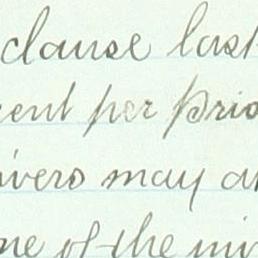 clause last
cent per Brio
ivers may a
ne of the mi